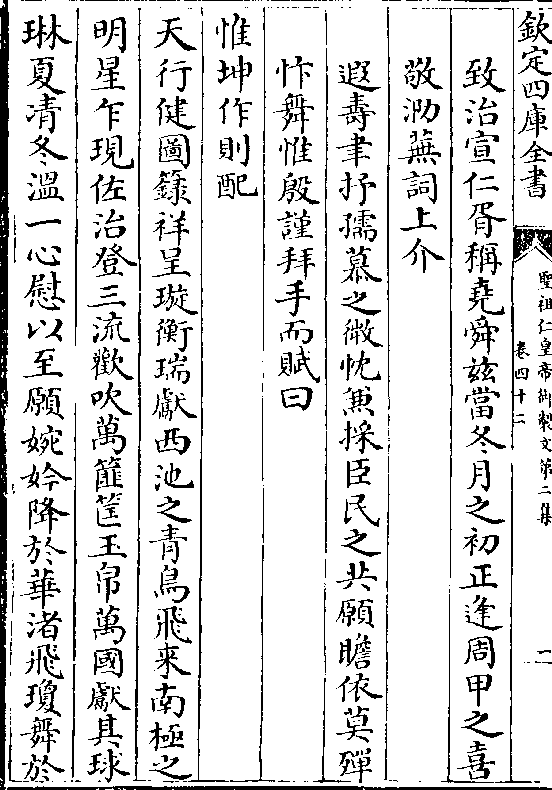 欽定四庫全書
聖祖仁皇帝御製文第二集
卷四十二
二
致治宣仁胥稱堯舜兹當冬月之初正逢周甲之喜
敬泐蕪詞上介
遐壽聿抒孺慕之微忱兼採臣民之共願瞻依莫殫
忭舞惟殷謹拜手而賦曰
惟坤作則配
天行健圖籙祥呈璇衡瑞獻西池之青鳥飛来南極之
明星乍現佐治登三流歡吹萬篚筐玉帛萬國獻其球
琳夏凊冬溫一心慰以至願婉妗降於華渚飛瓊舞於